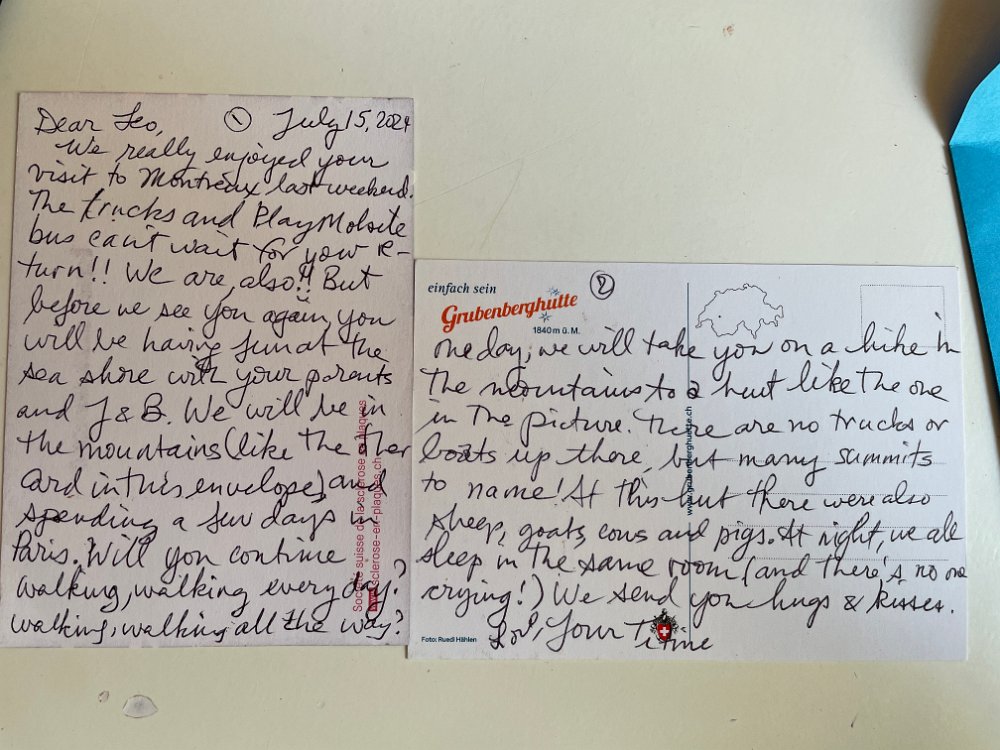 Dear Leo, ① July 15, 2024
We really enjoyed your
visit to Montreux last weekend.
The trucks and Play Mobile
bus can't wait for your re-
turn!! We are, also!! But
before we see you again, you
will be having fun at the
sea shore with your parents
and J & B. We will be in
the mountains (like the other
card in this envelope) and
spending a few days in
Paris. Will you continue
walking, walking every day?
walking, walking all the way?
Société suisse de la sclérose en plaques
sclerose-en-plaques.ch
einfach sein
②
Grubenberghütte
1840 m ü. M.
one day, we will take you on a hike in
the mountains to a hut like the one
in the picture. There are no trucks or
boats up there, but many summits
to name! At this hut there were also
sheep, goats, cows and pigs. At night, we all
sleep in the same room (and there's no one
crying!) We send you hugs & kisses.
Your Time
www.grubenberghuette.ch
Foto: Ruedi Hählen